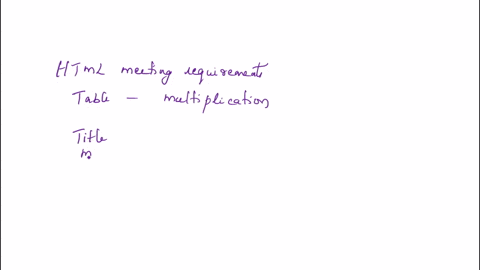 HTML meeting requirements
Table - multiplication
Title